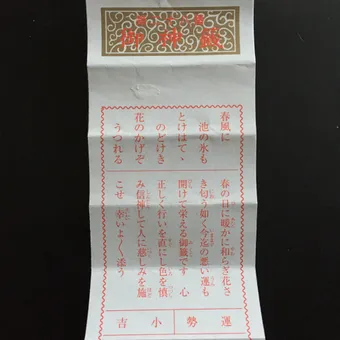 御神籤
春風に
池の氷も
とけはてゝ
のどけき
花のかげぞ
うつれる
春の日に暖かに和らぎ花さ
き匂う如く今迄の悪い運も
開けて栄える御籤です 心
正しく行いを直にし色を慎
み信神して人に慈しみを施
こせ 幸いよ〱添う
運勢 小吉